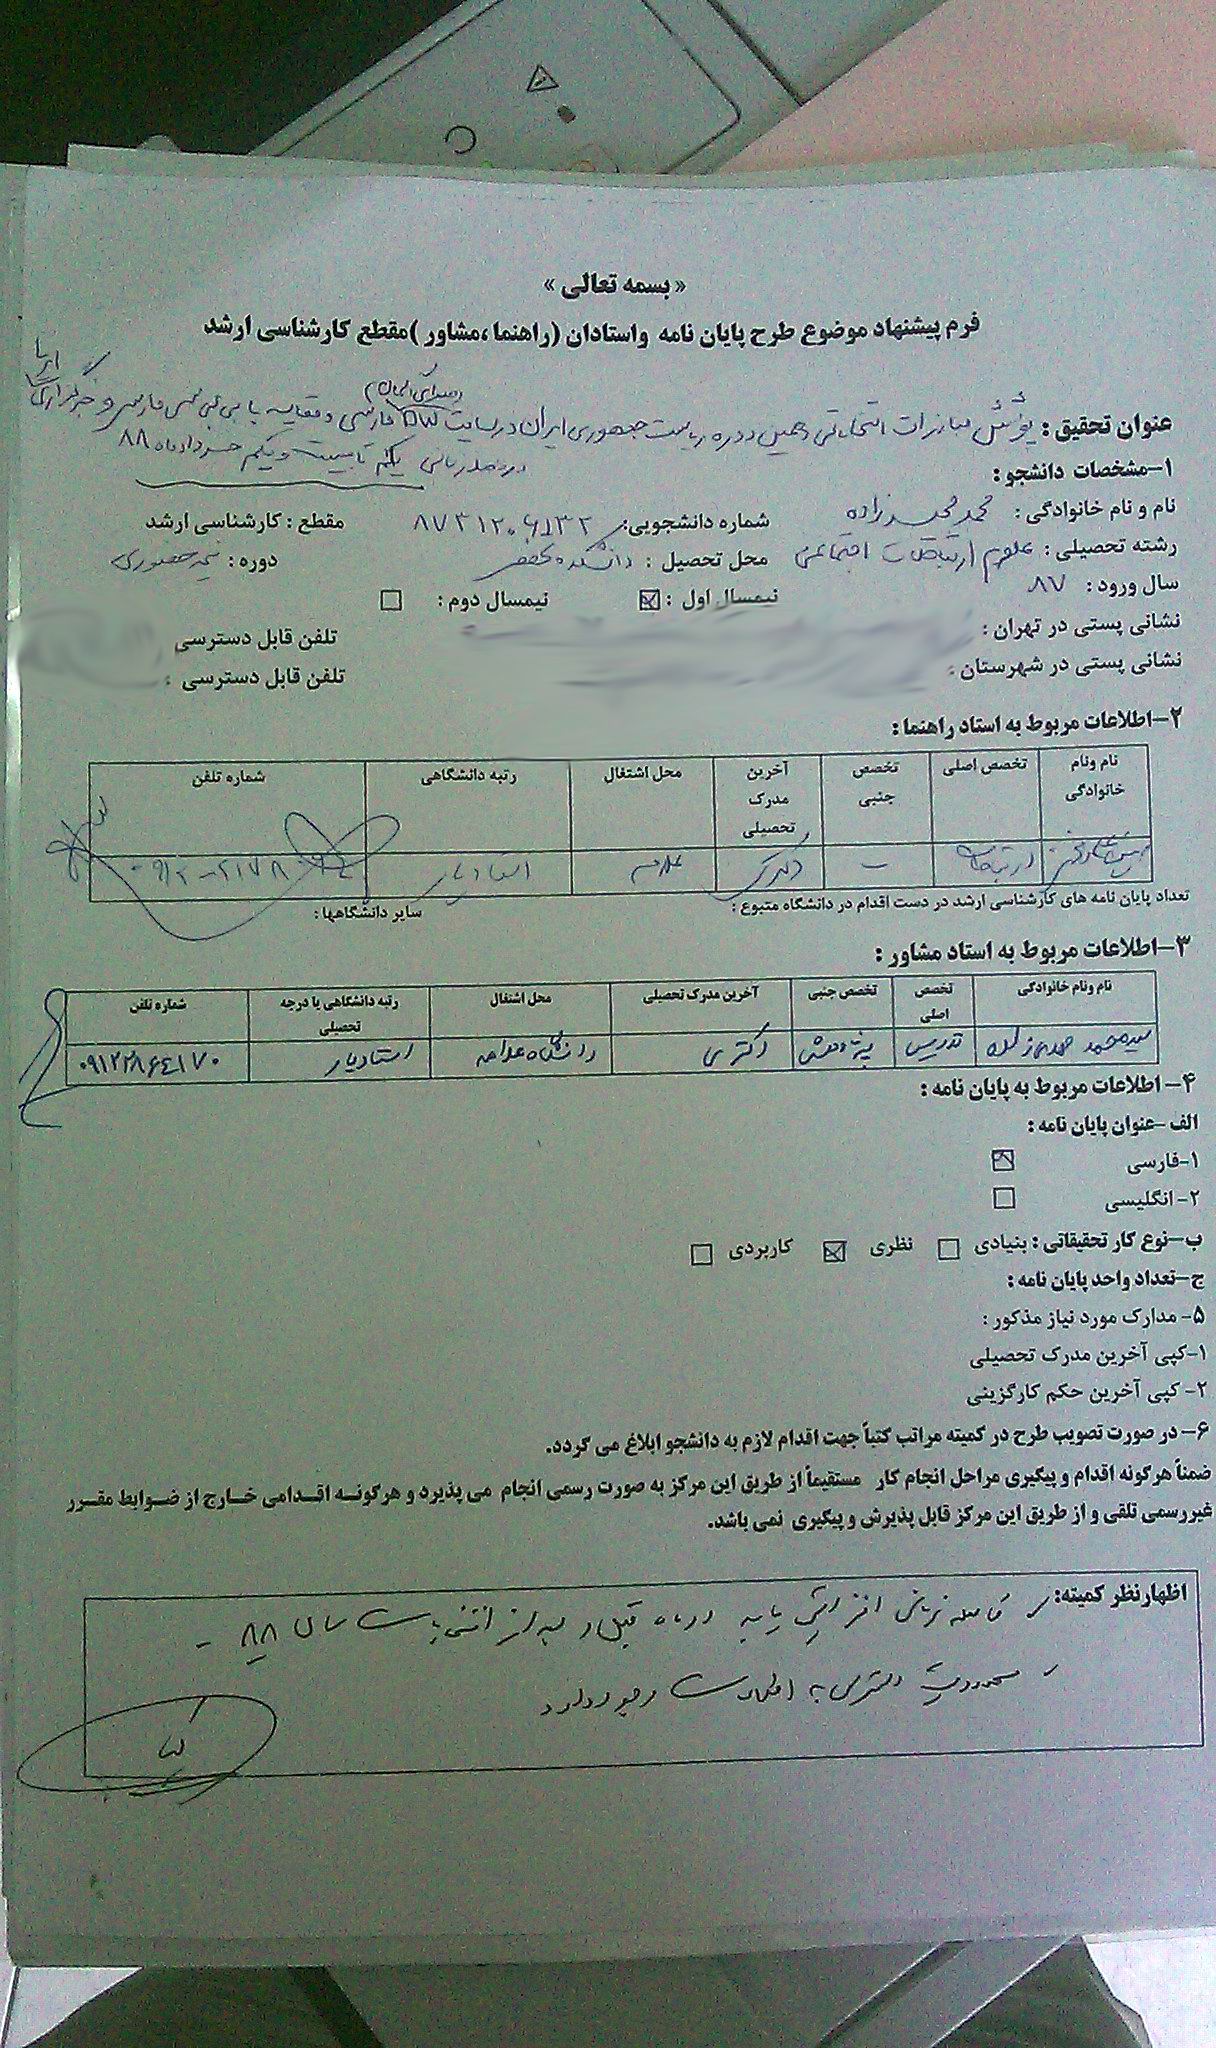 « بسمه تعالی »
فرم پیشنهاد موضوع طرح پایان نامه واستادان (راهنما ،مشاور )مقطع کارشناسی ارشد
عنوان تحقیق : پوشش مبارزات انتخاباتی دهمین دوره ریاست جمهوری ایران در سایت فارسی و مقایسه با بی بی سی فارسی و خبرگزاری ایرنا
یکم تا بیست و یکم خرداد ماه ۸۸
۱-مشخصات دانشجو :
نام و نام خانوادگی : محمد شماره دانشجویی: مقطع : کارشناسی ارشد
رشته تحصیلی : علوم ارتباطات اجتماعی محل تحصیل : دانشکده دوره : نیمه حضوری
سال ورود : ۸۷ نیمسال اول : نیمسال دوم :
نشانی پستی در تهران : تلفن قابل دسترسی
نشانی پستی در شهرستان : تلفن قابل دسترسی :
۲-اطلاعات مربوط به استاد راهنما :
نام ونام خانوادگی تخصص اصلی تخصص جنبی آخرین مدرک تحصیلی محل اشتغال رتبه دانشگاهی شماره تلفن
ارتباطات - دکتری علامه استادیار
تعداد پایان نامه های کارشناسی ارشد در دست اقدام در دانشگاه متبوع : سایر دانشگاهها :
۳-اطلاعات مربوط به استاد مشاور :
نام ونام خانوادگی تخصص اصلی تخصص جنبی آخرین مدرک تحصیلی محل اشتغال رتبه دانشگاهی یا درجه تحصیلی شماره تلفن
سیدمحمد تدریس پژوهش دکتری دانشگاه علامه استادیار ۰۹۱۲۲۸۶۴۱۷۰
۴- اطلاعات مربوط به پایان نامه :
الف -عنوان پایان نامه :
۱-فارسی
۲- انگلیسی
ب-نوع کار تحقیقاتی : بنیادی نظری کاربردی
ج-تعداد واحد پایان نامه :
۵- مدارک مورد نیاز مذکور :
۱-کپی آخرین مدرک تحصیلی
۲- کپی آخرین حکم کارگزینی
۶- در صورت تصویب طرح در کمیته مراتب کتباً جهت اقدام لازم به دانشجو ابلاغ می گردد.
ضمناً هرگونه اقدام و پیگیری مراحل انجام کار مستقیماً از طریق این مرکز به صورت رسمی انجام می پذیرد و هرگونه اقدامی خارج از ضوابط مقرر
غیررسمی تلقی و از طریق این مرکز قابل پذیرش و پیگیری نمی باشد.
اظهارنظر کمیته: - فاصله زمانی افزایش یابد دو ماه قبل و بعد از انتخابات سال ۸۸ -
- محدودیت دسترسی به اطلاعات وجود دارد